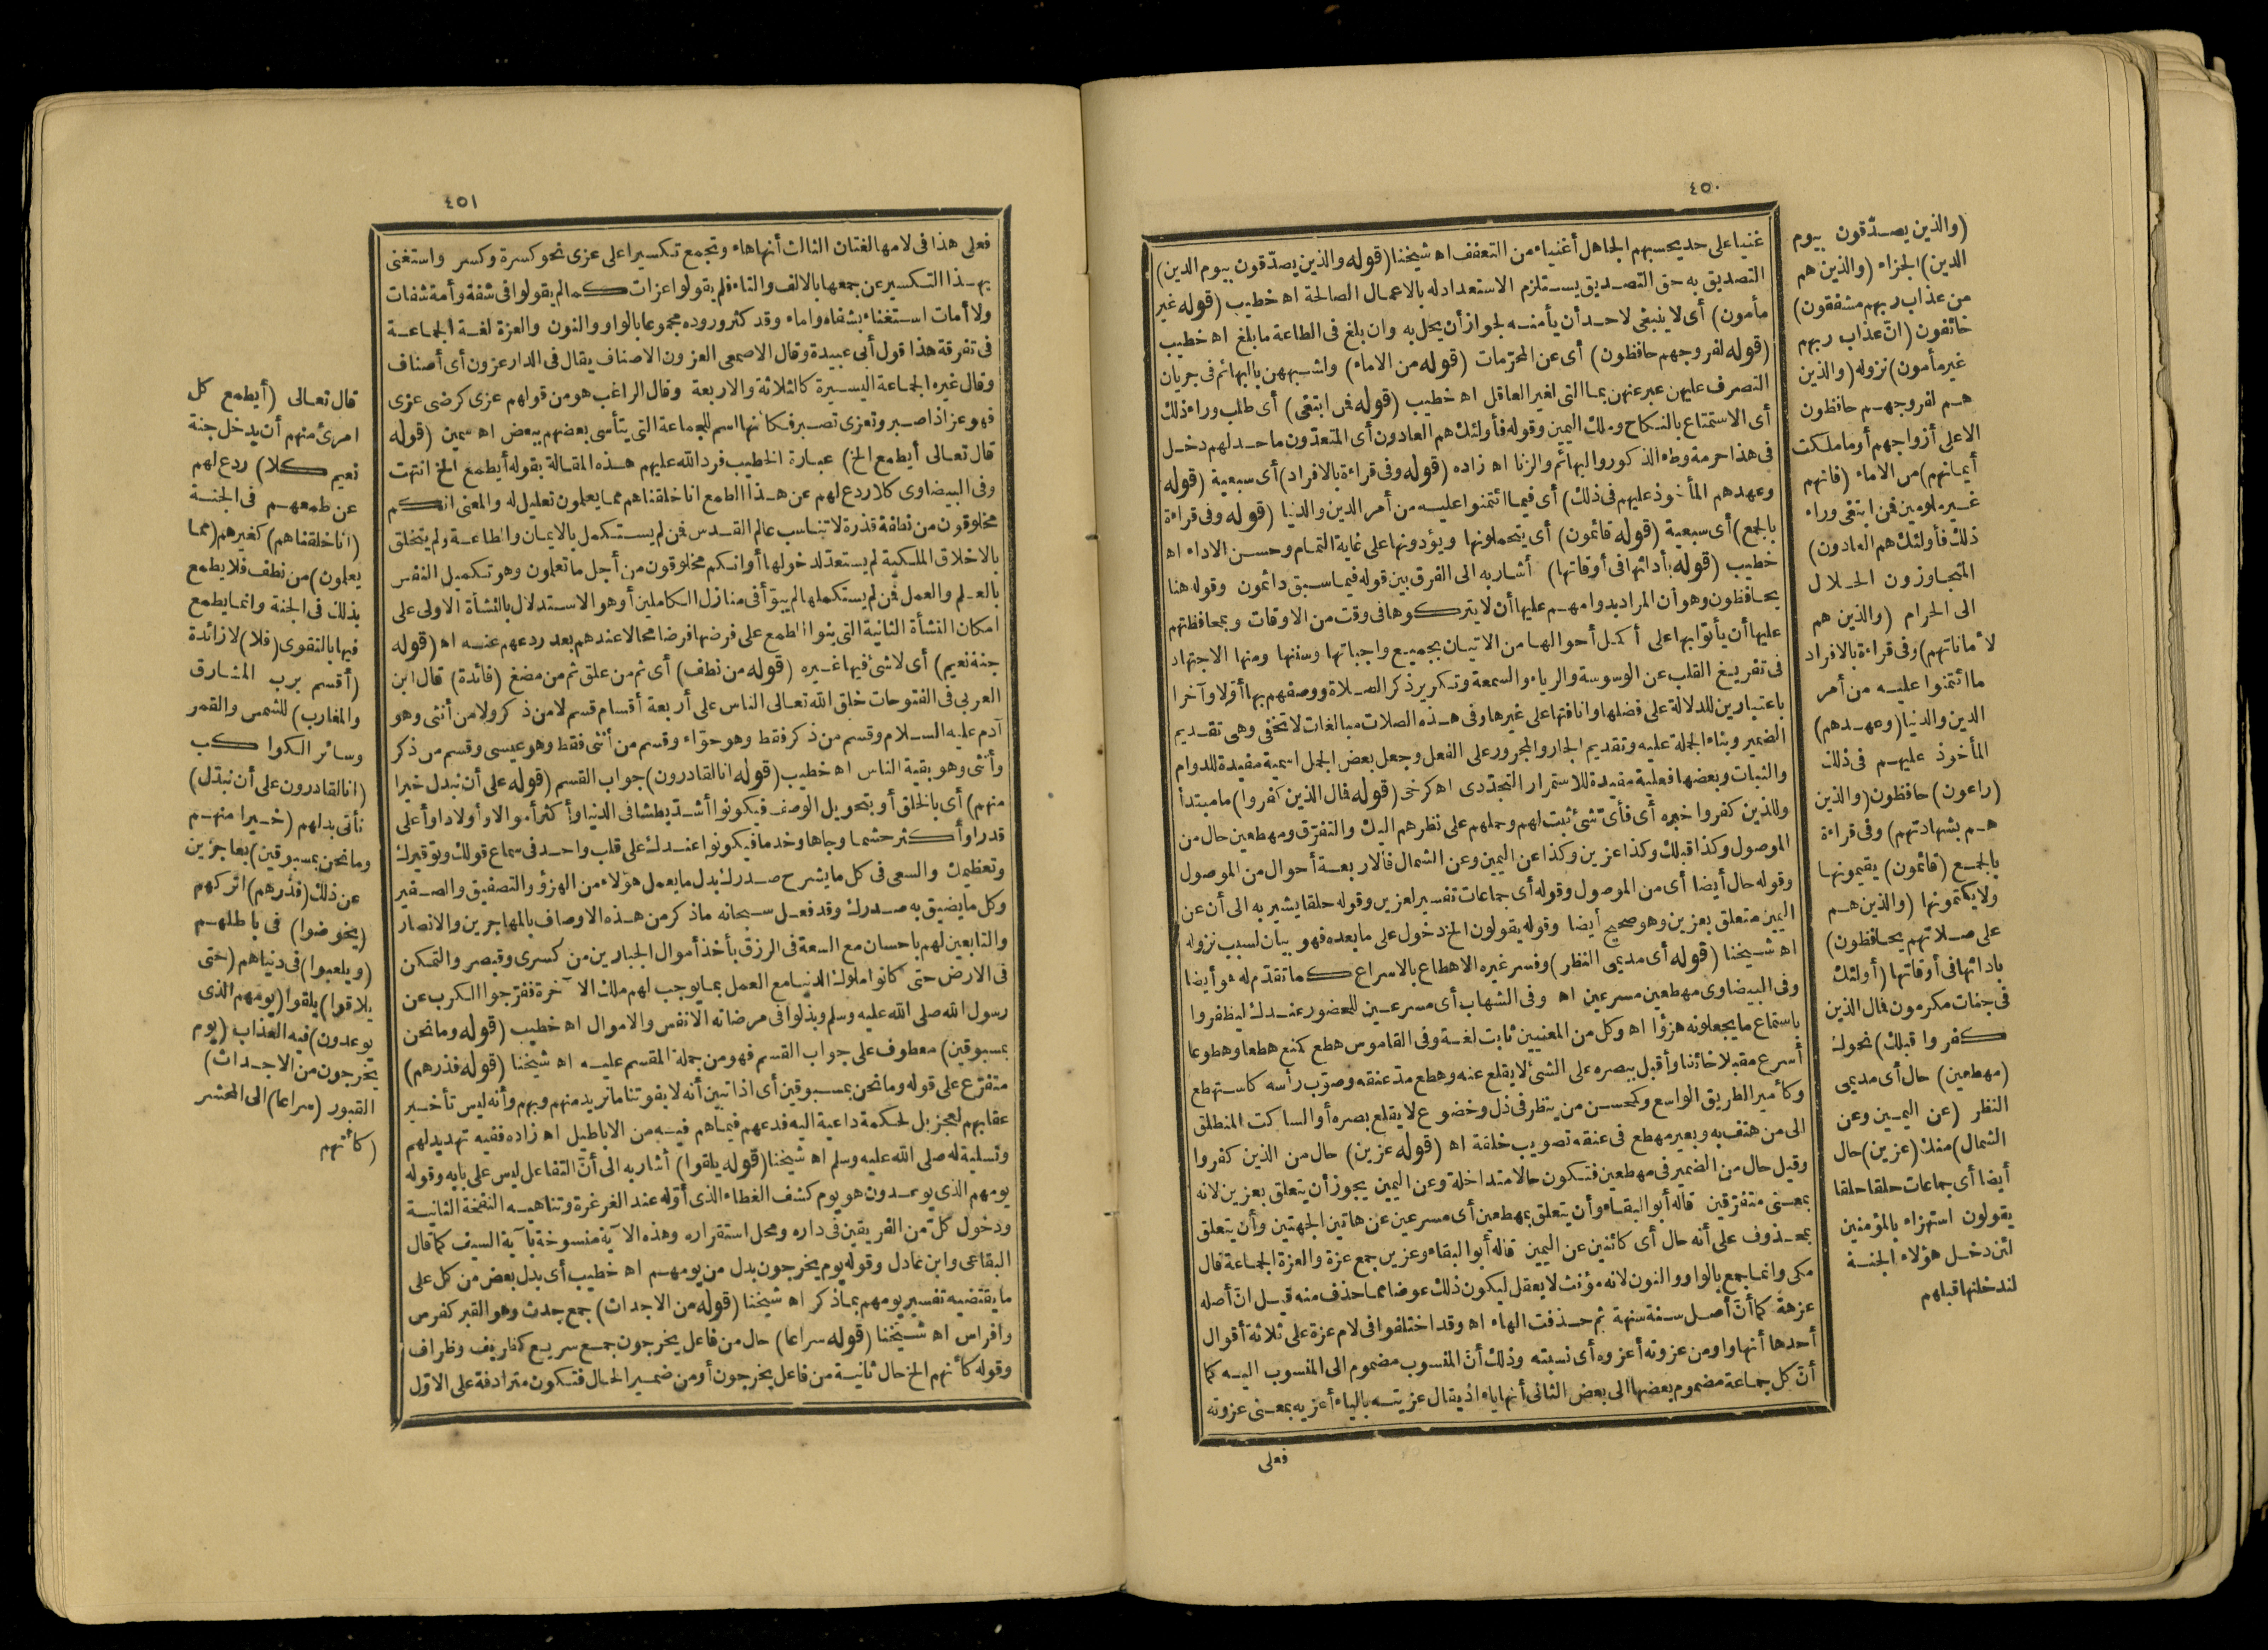 ٤٥٠
(والذين يصدّقون بيوم
الدين) الجزاء (والذين هم
من عذاب ربهم مشفقون)
خائفون (انّ عذاب ربهم
غير مأمون) نزوله (والذين
هم لفروجهم حافظون
الا على أزواجهم أو ما ملكت
أيمانهم) من الاماء (فانهم
غير ملومين فمن ابتغى وراء
ذلك فأولئك هم العادون)
المتجاوزون الحلال
الى الحرام (والذين هم
لأماناتهم) وفى قراءة بالافراد
ما ائتمنوا عليه من أمر
الدين والدنيا (وعهدهم)
المأخوذ عليهم فى ذلك
(راعون) حافظون (والذين
هم بشهادتهم) وفى قراءة
بالجمع (قائمون) يقيمونها
ولا يكتمونها (والذين هم
على صلاتهم يحافظون)
بادائها فى أوقاتها (أولئك
فى جنات مكرمون فمال الذين
كفروا قبلك) نحوك
(مهطعين) حال أى مديمى
النظر (عن اليمين وعن
الشمال) منك (عزين) حال
أيضا أى جماعات حلقا حلقا
يقولون استهزاء بالمؤمنين
لئن دخل هؤلاء الجنة
لندخلنها قبلهم
غنيا على حد يحسبهم الجاهل أغنياء من التعفف اه شيخنا (قوله والذين يصدّقون بيوم الدين)
التصديق به حق التصديق يستلزم الاستعداد له بالاعمال الصالحة اه خطيب (قوله غير
مأمون) أى لا ينبغى لاحد أن يأمنه لجواز أن يحل به وان بلغ فى الطاعة ما بلغ اه خطيب
(قوله لفروجهم حافظون) أى عن المحرّمات (قوله من الاماء) ولشبههن بالبهائم فى جريان
التصرف عليهن عبر عنهن بما التى لغير العاقل اه خطيب (قوله فمن ابتغى) أى طلب وراء ذلك
أى الاستمتاع بالنكاح وملك اليمين وقوله فأولئك هم العادون أى المتعدّون ما حد لهم دخل
فى هذا حرمة وطء الذكور والبهائم والزنا اه زاده (قوله وفى قراءة بالافراد) أى سبعية (قوله
وعهدهم المأخوذ عليهم فى ذلك) أى فيما ائتمنوا عليه من أمر الدين والدنيا (قوله وفى قراءة
بالجمع) أى سبعية (قوله قائمون) أى يتحملونها ويؤدونها على غاية التمام وحسن الاداء اه
خطيب (قوله بأدائها فى أوقاتها) أشار به الى الفرق بين قوله فيما سبق دائمون وقوله هنا
يحافظون وهو أن المراد بدوامهم عليها أن لا يتركوها فى وقت من الاوقات وبمحافظتهم
عليها أن يأتوا بها على أكمل أحوالها من الاتيان بجميع واجباتها وسننها ومنها الاجتهاد
فى تفريغ القلب عن الوسوسة والرياء والسمعة وتكرير ذكر الصلاة ووصفهم بها أوّلا وآخرا
باعتبارين للدلالة على فضلها وانافتها على غيرها وفى هذه الصلات مبالغات لا تخفى وهى تقديم
الضمير وبناء الجملة عليه وتقديم الجار والمجرور على الفعل وجعل بعض الجمل اسمية مفيدة للدوام
والثبات وبعضها فعلية مفيدة للاستمرار التجدّدى اه كرخى (قوله فمال الذين كفروا) ما مبتدأ
وللذين كفروا خبره أى فأى شئ ثبت لهم وحملهم على نظرهم اليك والتفرّق ومهطعين حال من
الموصول وكذا قبلك وكذا عزين وكذا عن اليمين وعن الشمال فالاربعة أحوال من الموصول
وقوله حال أيضا أى من الموصول وقوله أى جماعات تفسير لعزين وقوله حلقا يشير به الى أن عن
اليمين متعلق بعزين وهو صحيح أيضا وقوله يقولون الخ دخول على ما بعده فهو بيان لسبب نزوله
اه شيخنا (قوله أى مديمى النظر) وفسر غيره الاهطاع بالاسراع كما تقدّم له هو أيضا
وفى البيضاوى مهطعين مسرعين اه وفى الشهاب أى مسرعين للحضور عندك ليظفروا
باستماع ما يجعلونه هزؤا اه وكل من المعنيين ثابت لغة وفى القاموس هطع كمنع هطعا وهطوعا
أسرع مقبلا خائفا وأقبل ببصره على الشئ لا يقلع عنه وهطع مدّ عنقه وصوّب رأسه كاستهطع
وكأمير الطريق الواسع وكمحسن من ينظر فى ذل وخضوع لا يقلع بصره أو الساكت المنطلق
الى من هتف به وبعير مهطع فى عنقه تصويب خلقة اه (قوله عزين) حال من الذين كفروا
وقيل حال من الضمير فى مهطعين فتكون حالا متداخلة وعن اليمين يجوز أن يتعلق بعزين لانه
بمعنى متفرّقين قاله أبو البقاء وأن يتعلق بمهطعين أى مسرعين عن هاتين الجهتين وأن يتعلق
بمحذوف على أنه حال أى كائنين عن اليمين قاله أبو البقاء وعزين جمع عزة والعزة الجماعة قال
مكى وانما جمع بالواو والنون لانه مؤنث لا يعقل ليكون ذلك عوضا مما حذف منه قيل انّ أصله
عزهة كما أنّ أصل سنة سنهة ثم حذفت الهاء اه وقد اختلفوا فى لام عزة على ثلاثة أقوال
أحدها أنها واو من عزوته أعزوه أى نسبته وذلك أنّ المنسوب مضموم الى المنسوب اليه كما
أنّ كل جماعة مضموم بعضها الى بعض الثانى أنها ياء اذ يقال عزيته بالياء أعزيه بمعنى عزوته
فعلى
٤٥١
فعلى هذا فى لامها لغتان الثالث أنها هاء وتجمع تكسيرا على عزى نحو كسرة وكسر واستغنى
بهذا التكسير عن جمعها بالالف والتاء فلم يقولوا عزات كما لم يقولوا فى شفة وأمة شفات
ولا أمات استغناء بشفاه واماء وقد كثر وروده مجموعا بالواو والنون والعزة لغة الجماعة
فى تفرقة هذا قول أبى عبيدة وقال الاصمعى العزون الاصناف يقال فى الدار عزون أى أصناف
وقال غيره الجماعة اليسيرة كالثلاثة والاربعة وقال الراغب هو من قولهم عزى كرضى عزى
فهو عز اذا صبر وتعزى تصبر فكأنها اسم للجماعة التى يتأسى بعضهم ببعض اه سمين (قوله
قال تعالى أيطمع الخ) عبارة الخطيب فرد الله عليهم هذه المقالة بقوله أيطمع الخ انتهت
وفى البيضاوى كلا ردع لهم عن هذا الطمع انا خلقناهم مما يعلمون تعليل له والمعنى انكم
مخلوقون من نطفة قذرة لا تناسب عالم القدس فمن لم يستكمل بالايمان والطاعة ولم يتخلق
بالاخلاق الملكية لم يستعد لدخولها أو انكم مخلوقون من أجل ما تعلمون وهو تكميل النفس
بالعلم والعمل فمن لم يستكملها لم يبوّأ فى منازل الكاملين أو هو الاستدلال بالنشأة الاولى على
امكان النشأة الثانية التى بنوا الطمع على فرضها فرضا محالا عندهم بعد ردعهم عنه اه (قوله
جنة نعيم) أى لا شئ فيها غيره (قوله من نطف) أى ثم من علق ثم من مضغ (فائدة) قال ابن
العربى فى الفتوحات خلق الله تعالى الناس على أربعة أقسام قسم لا من ذكر ولا من أنثى وهو
آدم عليه السلام وقسم من ذكر فقط وهو حوّاء وقسم من أنثى فقط وهو عيسى وقسم من ذكر
وأنثى وهو بقية الناس اه خطيب (قوله انا لقادرون) جواب القسم (قوله على أن نبدل خيرا
منهم) أى بالخلق أو بتحويل الوصف فيكونوا أشدّ بطشا فى الدنيا وأكثر أموالا وأولادا وأعلى
قدرا وأكثر حشما وجاها وخدما فيكونوا عندك على قلب واحد فى سماع قولك وتوقيرك
وتعظيمك والسعى فى كل ما يشرح صدرك بدل ما يعمل هؤلاء من الهزؤ والتصفيق والصفير
وكل ما يضيق به صدرك وقد فعل سبحانه ما ذكر من هذه الاوصاف بالمهاجرين والانصار
والتابعين لهم باحسان مع السعة فى الرزق بأخذ أموال الجبارين من كسرى وقيصر والتمكن
فى الارض حتى كانوا ملوك الدنيا مع العمل بما يوجب لهم ملك الآخرة ففرّجوا الكرب عن
رسول الله صلى الله عليه وسلم وبذلوا فى مرضاته الانفس والاموال اه خطيب (قوله وما نحن
بمسبوقين) معطوف على جواب القسم فهو من جملة المقسم عليه اه شيخنا (قوله فذرهم)
متفرّع على قوله وما نحن بمسبوقين أى اذا تبين أنه لا يفوتنا ما نريد منهم وبهم وأنه ليس تأخير
عقابهم لعجز بل لحكمة داعية اليه فدعهم فيما هم فيه من الاباطيل اه زاده ففيه تهديد لهم
وتسلية له صلى الله عليه وسلم اه شيخنا (قوله يلقوا) أشار به الى أنّ التفاعل ليس على بابه وقوله
يومهم الذى يوعدون هو يوم كشف الغطاء الذى أوّله عند الغرغرة وتناهيه النفخة الثانية
ودخول كلّ من الفريقين فى داره ومحل استقراره وهذه الآية منسوخة بآية السيف كما قال
البقاعى وابن عادل وقوله يوم يخرجون بدل من يومهم اه خطيب أى بدل بعض من كل على
ما يقتضيه تفسير يومهم بما ذكر اه شيخنا (قوله من الاجداث) جمع جدث وهو القبر كفرس
وافراس اه شيخنا (قوله سراعا) حال من فاعل يخرجون جمع سريع كظريف وظراف
وقوله كأنهم الخ حال ثانية من فاعل يخرجون أو من ضمير الحال فتكون مترادفة على الاوّل
قال تعالى (أيطمع كل
امرئ منهم أن يدخل جنة
نعيم كلا) ردع لهم
عن طمعهم فى الجنة
(انا خلقناهم) كغيرهم (مما
يعلمون) من نطف فلا يطمع
بذلك فى الجنة وانما يطمع
فيها بالتقوى (فلا) لا زائدة
(أقسم برب المشارق
والمغارب) للشمس والقمر
وسائر الكواكب
(انا لقادرون على أن نبدّل)
نأتى بدلهم (خيرا منهم
وما نحن بمسبوقين) بعاجزين
عن ذلك (فذرهم) اتركهم
(يخوضوا) فى باطلهم
(ويلعبوا) فى دنياهم (حتى
يلاقوا) يلقوا (يومهم الذى
يوعدون) فيه العذاب (يوم
يخرجون من الاجداث)
القبور (سراعا) الى المحشر
(كأنهم